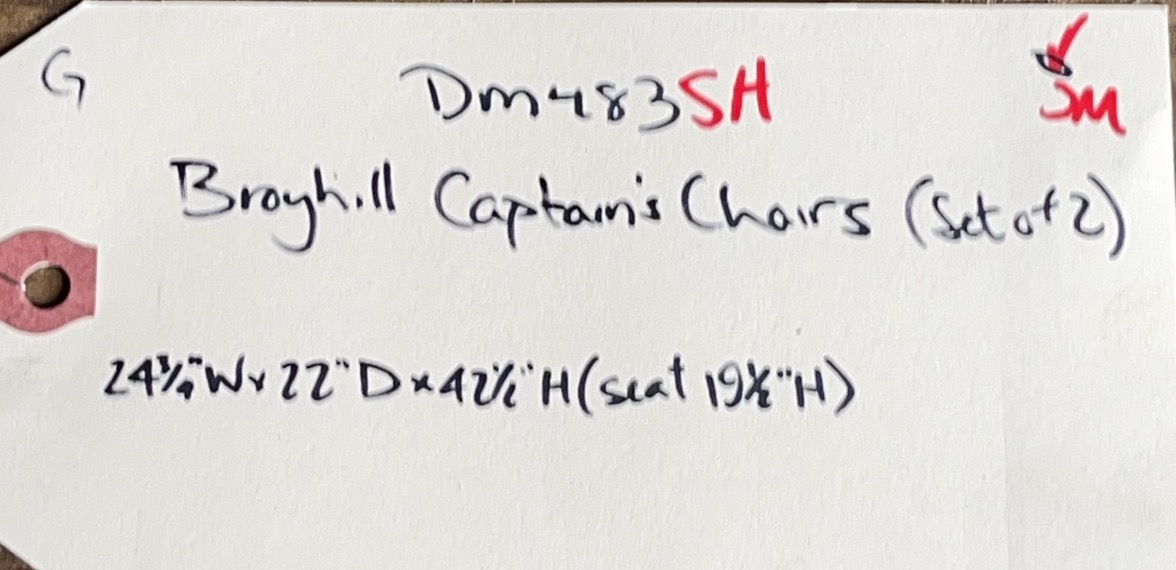 G DM483SH SM
Broyhill Captain's Chairs (Set of 2)
24¾"W x 22"D x 42½"H (seat 19½"H)